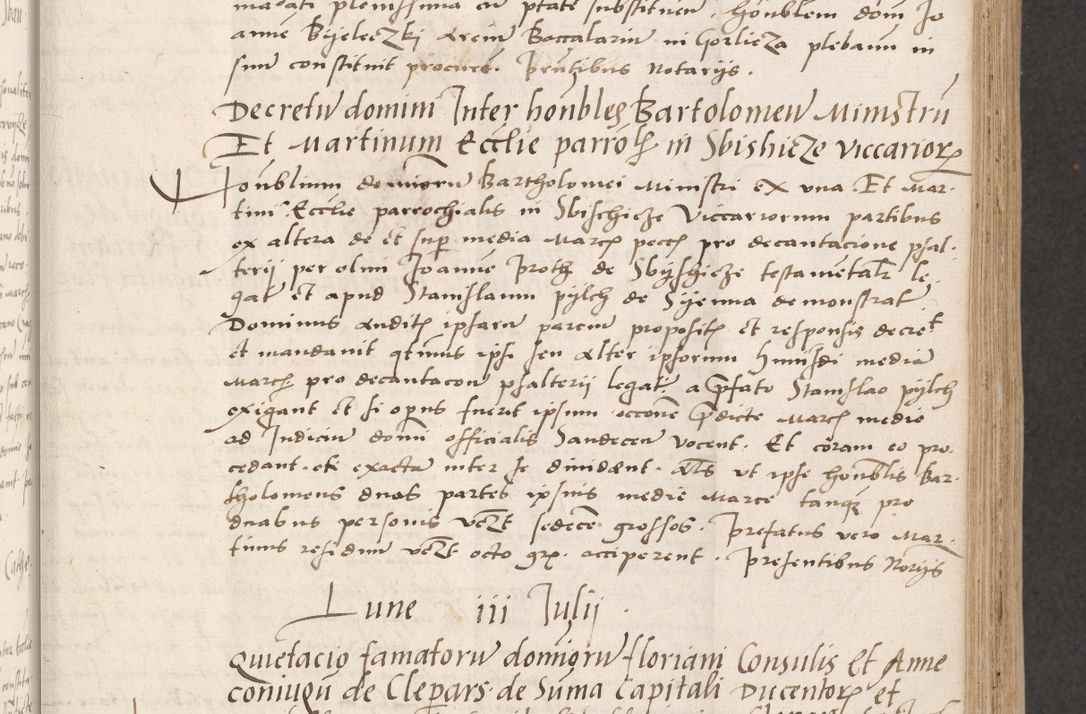 mandati plenissima cu ptate substituen. honblem dom Jo
anne Byeleczki Arciu Baccalariu in Gorlicza plebanu in
sum constituit procure. Prntibus Notarijs.
Decretu domini Inter honbles Bartolomeu Ministru
Et Martinum Ecclie parroch in Sbishicze viccarior
Honbilium dominoru Bartholomei Ministri ex una Et Mar-
tini Ecclie parrochialis in Sbischicze Viccariorum partibus
ex altera de et sup media March pecch pro decantacione psal-
terij per olim Joanne Proth de Sbyschicze testamentalr le-
gat et apud Stanislaum pylch de Syenna demonstrat
Dominus Auditis ipsaru parciu propositis et responsis decret
et mandauit qtenus ipsi seu alter ipsorum hmusdi media
March pro decantacon psalterij legata a prefato Stanislao pylch
exigant et si opus fuerit ipsum occone predicte March medie
ad Judiciu domi officialis Sandecen vocent. Et coram eo pro-
cedant. ete exacta inter se diuidant. Als ut ipse honblis Bar-
tholomeus duas partes ipsius medie Marce tanq pro
duabus personis vezt sedece grossos. Prefatus vero Mar-
tinus residuu vezt octo gr. acciperent. Presentibus Norijs
Lune iii Julij.
Quietacio famatoru dominoru floriani Consulis Et Anne
coniugu de Clepars de Suma Capitali Ducentor et